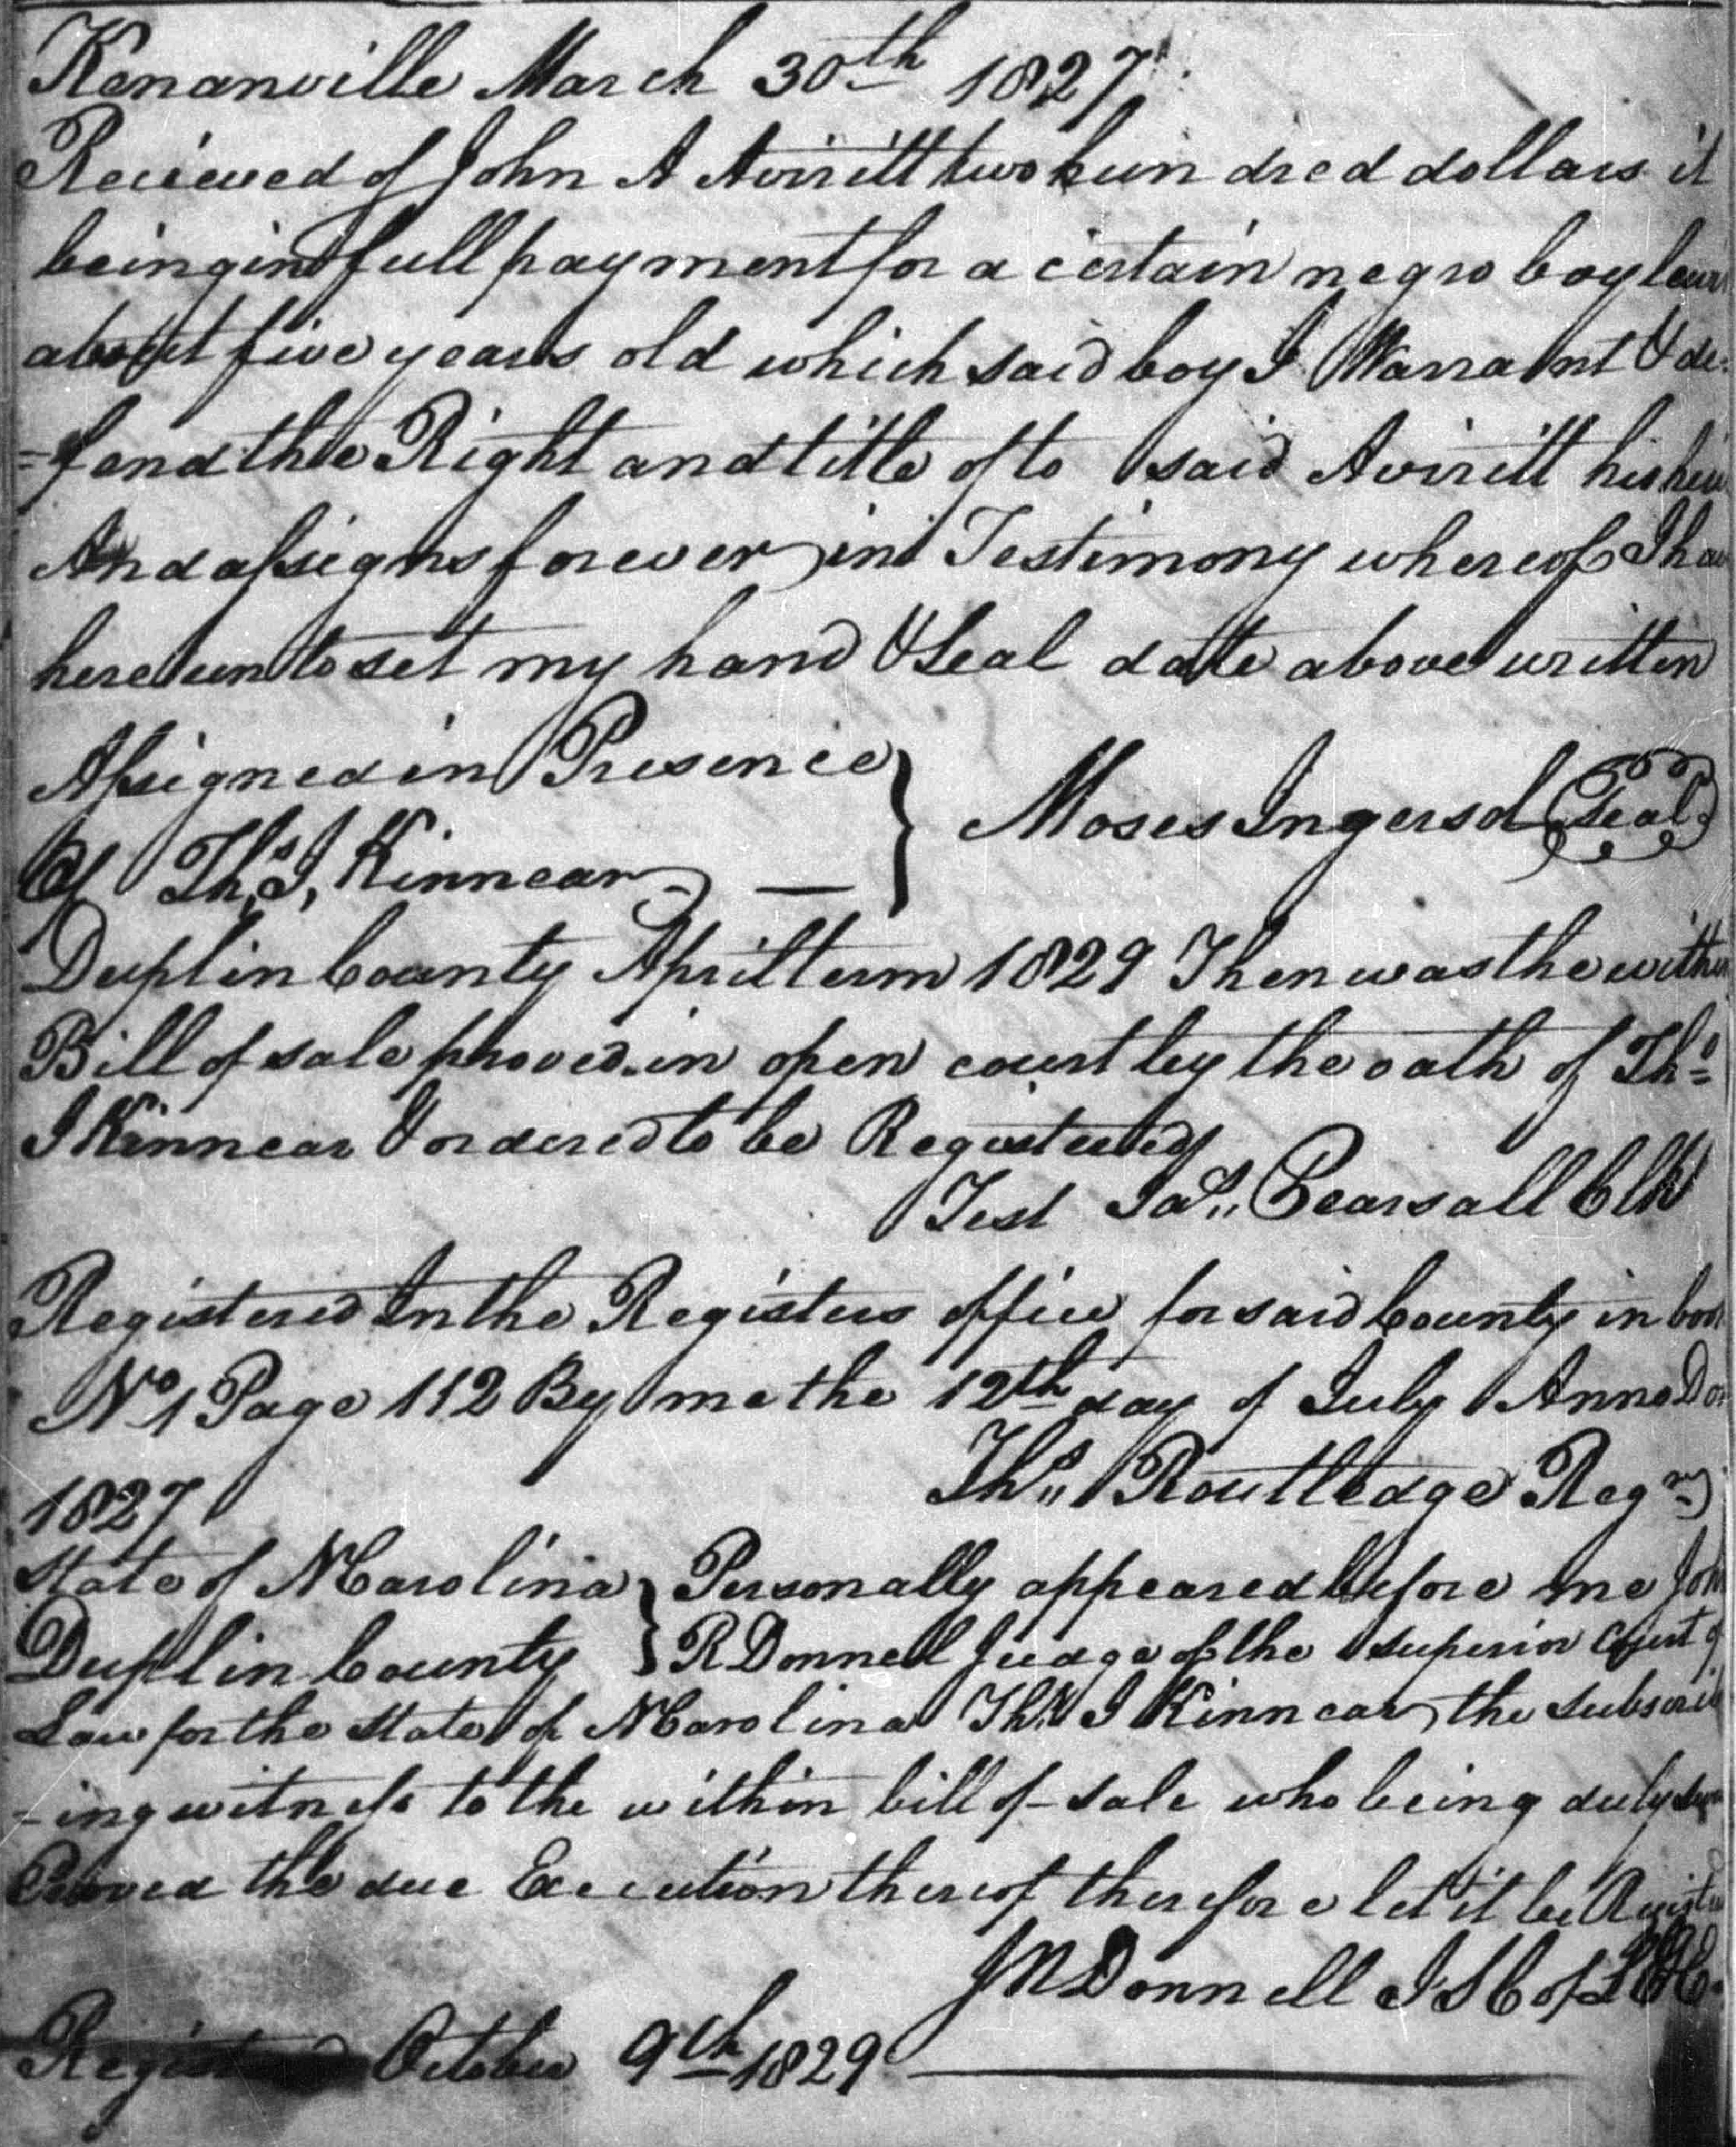 Kenanville March 30th 1827
Recieved of John A Aviritt two hundred dollars it
being in full payment for a certain negro boy
about five years old which said boy I Warrant & de
=fend the Right and title of to said Avirett his
And assigns forever in Testimony whereof I
hereunto set my hand & Seal date above written
Assigned in Presence
Of Ths. J, Kinnear
Moses Ingersol Seal
Duplin County April term 1829 Then was the
Bill of sale proved in open court by the oath of Ths
J Kinnear & ordered to be Registered
Test Jas,, Pearsall Clk
Registered In the Registers office for said County in
No 1 Page 112 By me the 12th day of July Anno
1827 Ths,, Routledge Regr
State of NCarolina } Personally appeared before me
Duplin County } R Donnell Judge of the superior Court of
Law for the State of NCarolina Ths J Kinnear the
-ing witness to the within bill of sale who being duly
Proved the due Execution thereof therefore let it be
Donnell J S C of L
October 9th 1829